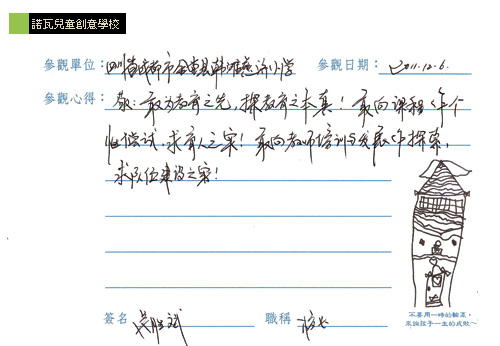 諾瓦兒童創意學校
參觀單位：四川省成都市金堂县韩滩 小学 參觀日期：2011.12.6.
參觀心得：敬：敢为教育之先，探教育之本真！敢向课程 个
性 尝试，求育人之 ！敢向教师培训与发展 探索，
求队伍建设之 ！
簽名 吴 斌 職稱 校长
不要用一時的輸贏，
來論孩子一生的成敗～